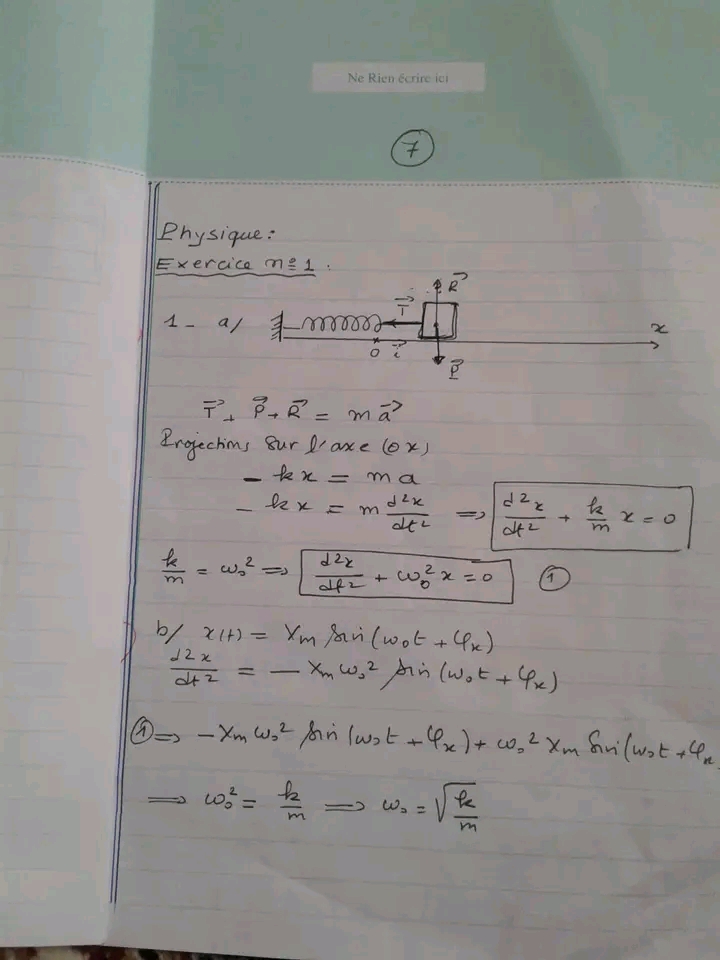 Ne Rien écrire ici
7
Physique:
Exercice n°1.
1 - a/
R⃗
T⃗
x
O i⃗
P⃗
T⃗ + P⃗ + R⃗ = m a⃗
Projections sur l'axe (ox)
- kx = m a
- kx = m d²x/dt² ⟹ d²x/dt² + k/m x = 0
k/m = ω₀² ⟹ d²x/dt² + ω₀² x = 0 ①
b/ x(t) = Xm sin(ω₀t + φx)
d²x/dt² = - Xm ω₀² sin(ω₀t + φx)
① ⟹ - Xm ω₀² sin(ω₀t + φx) + ω₀² Xm sin(ω₀t + φx
⟹ ω₀² = k/m ⟹ ω₀ = √(k/m)